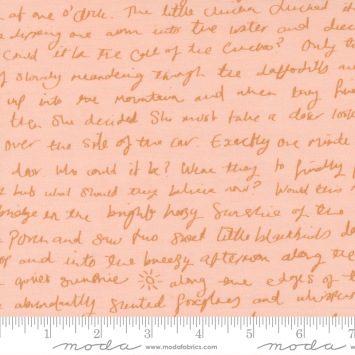 at one o'clock. The little chicken clucked
dipping one arm into the water and
could it be the Call of the Cuckoo? Only
slowly meandering through the daffodils
up into the mountain and when they
then She decided She must take a closer look
over the side of the car. Exactly one minute
door. Who could it be? Were they to finally
but what should they believe now? Would this
bridge in the bright hazy Sunshine of the
Porch and saw two sweet little blackbirds
and into the breezy afternoon along the
quiet sunshine along the edges of
abundantly scented foxgloves and
1 2 3 4 5 6 7
moda www.modafabrics.com moda